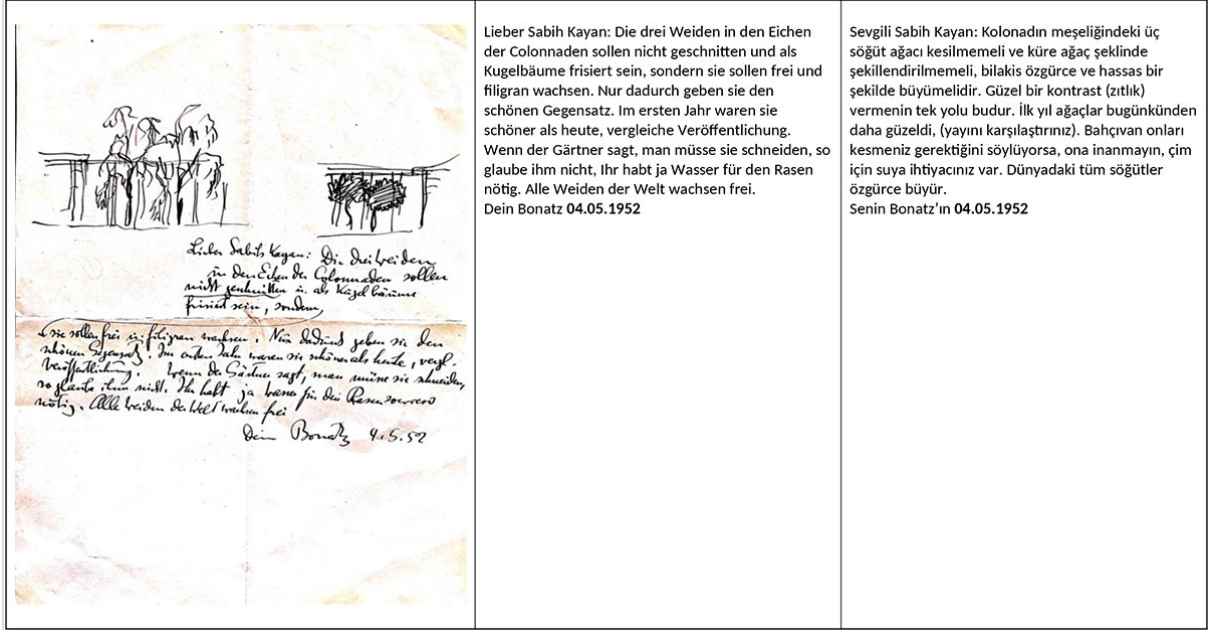 Lieber Sabih Kayan: Die drei Weiden
in den Ecken der Colonnaden sollen
nicht geschnitten u. als Kugelbäume
frisiert sein, sondern,
sie sollen frei u. filigran wachsen. Nur dadurch geben sie den
schönen Gegensatz. Im ersten Jahr waren sie schöner als heute, vergl.
Veröffentlichung. Wenn der Gärtner sagt, man müsse sie schneiden,
so glaube ihm nicht. Ihr habt ja Wasser für den Rasen
nötig. Alle Weiden der Welt wachsen frei
Dein Bonatz 4.5.52
Lieber Sabih Kayan: Die drei Weiden in den Eichen
der Colonnaden sollen nicht geschnitten und als
Kugelbäume frisiert sein, sondern sie sollen frei und
filigran wachsen. Nur dadurch geben sie den
schönen Gegensatz. Im ersten Jahr waren sie
schöner als heute, vergleiche Veröffentlichung.
Wenn der Gärtner sagt, man müsse sie schneiden, so
glaube ihm nicht, Ihr habt ja Wasser für den Rasen
nötig. Alle Weiden der Welt wachsen frei.
Dein Bonatz 04.05.1952
Sevgili Sabih Kayan: Kolonadın meşeliğindeki üç
söğüt ağacı kesilmemeli ve küre ağaç şeklinde
şekillendirilmemeli, bilakis özgürce ve hassas bir
şekilde büyümelidir. Güzel bir kontrast (zıtlık)
vermenin tek yolu budur. İlk yıl ağaçlar bugünkünden
daha güzeldi, (yayını karşılaştırınız). Bahçıvan onları
kesmeniz gerektiğini söylüyorsa, ona inanmayın, çim
için suya ihtiyacınız var. Dünyadaki tüm söğütler
özgürce büyür.
Senin Bonatz’ın 04.05.1952